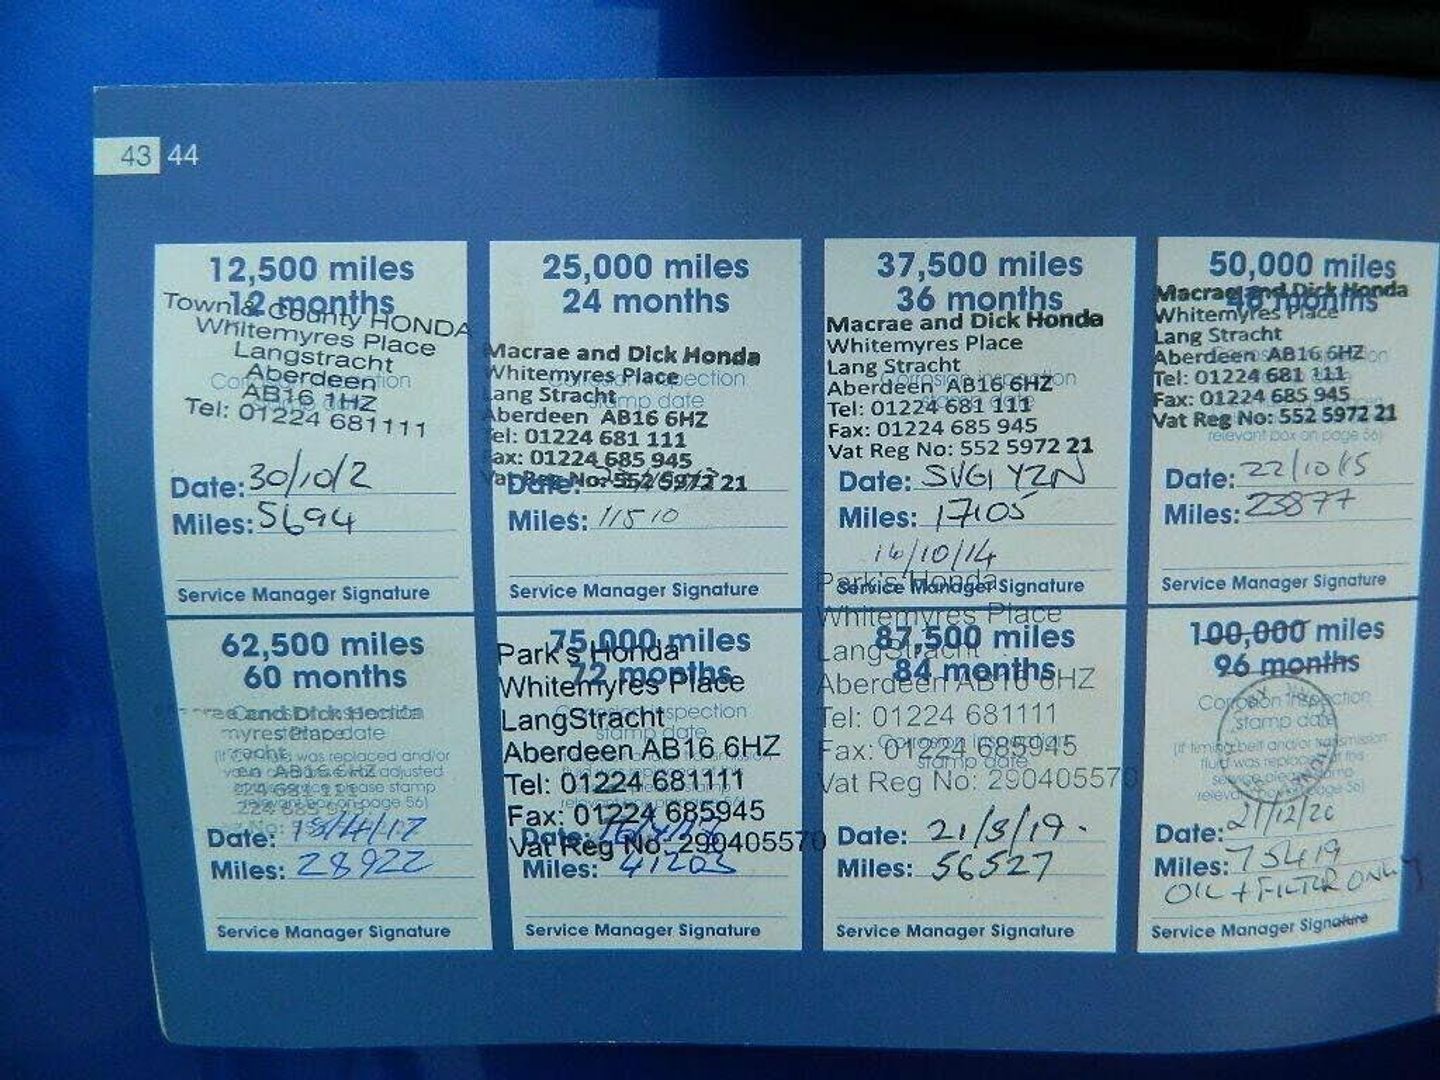 43 44
12,500 miles
12 months
Town & County HONDA
Whitemyres Place
Langstracht
Aberdeen
AB16 1HZ
Tel: 01224 681111
Date: 30/10/2
Miles: 5694
Service Manager Signature
25,000 miles
24 months
Macrae and Dick Honda
Whitemyres Place
Lang Stracht
Aberdeen AB16 6HZ
Tel: 01224 681 111
Fax: 01224 685 945
Vat Reg No: 552 5972 21
Date:
Miles: 11510
Service Manager Signature
37,500 miles
36 months
Macrae and Dick Honda
Whitemyres Place
Lang Stracht
Aberdeen AB16 6HZ
Corrosion inspection
stamp date
Tel: 01224 681 111
Fax: 01224 685 945
Vat Reg No: 552 5972 21
Date: SV61 YZN
Miles: 17105
14/10/14
Service Manager Signature
50,000 miles
48 months
Macrae and Dick Honda
Whitemyres Place
Lang Stracht
Aberdeen AB16 6HZ
Tel: 01224 681 111
Fax: 01224 685 945
Vat Reg No: 552 5972 21
relevant box on page 56)
Date: 22/10/15
Miles: 23877
Service Manager Signature
62,500 miles
60 months
Corrosion inspection
stamp date
was replaced and/or
adjusted
please stamp
relevant box on page 56)
Date: /4/17
Miles: 28922
Service Manager Signature
75,000 miles
72 months
Park's Honda
Whitemyres Place
LangStracht
Corrosion inspection
stamp date
Aberdeen AB16 6HZ
Tel: 01224 681111
Fax: 01224 685945
Vat Reg No: 290405570
Date:
Miles: 41203
Service Manager Signature
87,500 miles
84 months
Park's Honda
Whitemyres Place
LangStracht
Aberdeen AB16 6HZ
Tel: 01224 681111
Fax: 01224 685945
Corrosion inspection
stamp date
Vat Reg No: 290405570
Date: 21/3/19.
Miles: 56527
Service Manager Signature
100,000 miles
96 months
Corrosion inspection
stamp date
(if timing belt and/or transmission
fluid was replaced
Date: 21/12/20
Miles: 75419
OIL + FILTER ONLY
Service Manager Signature